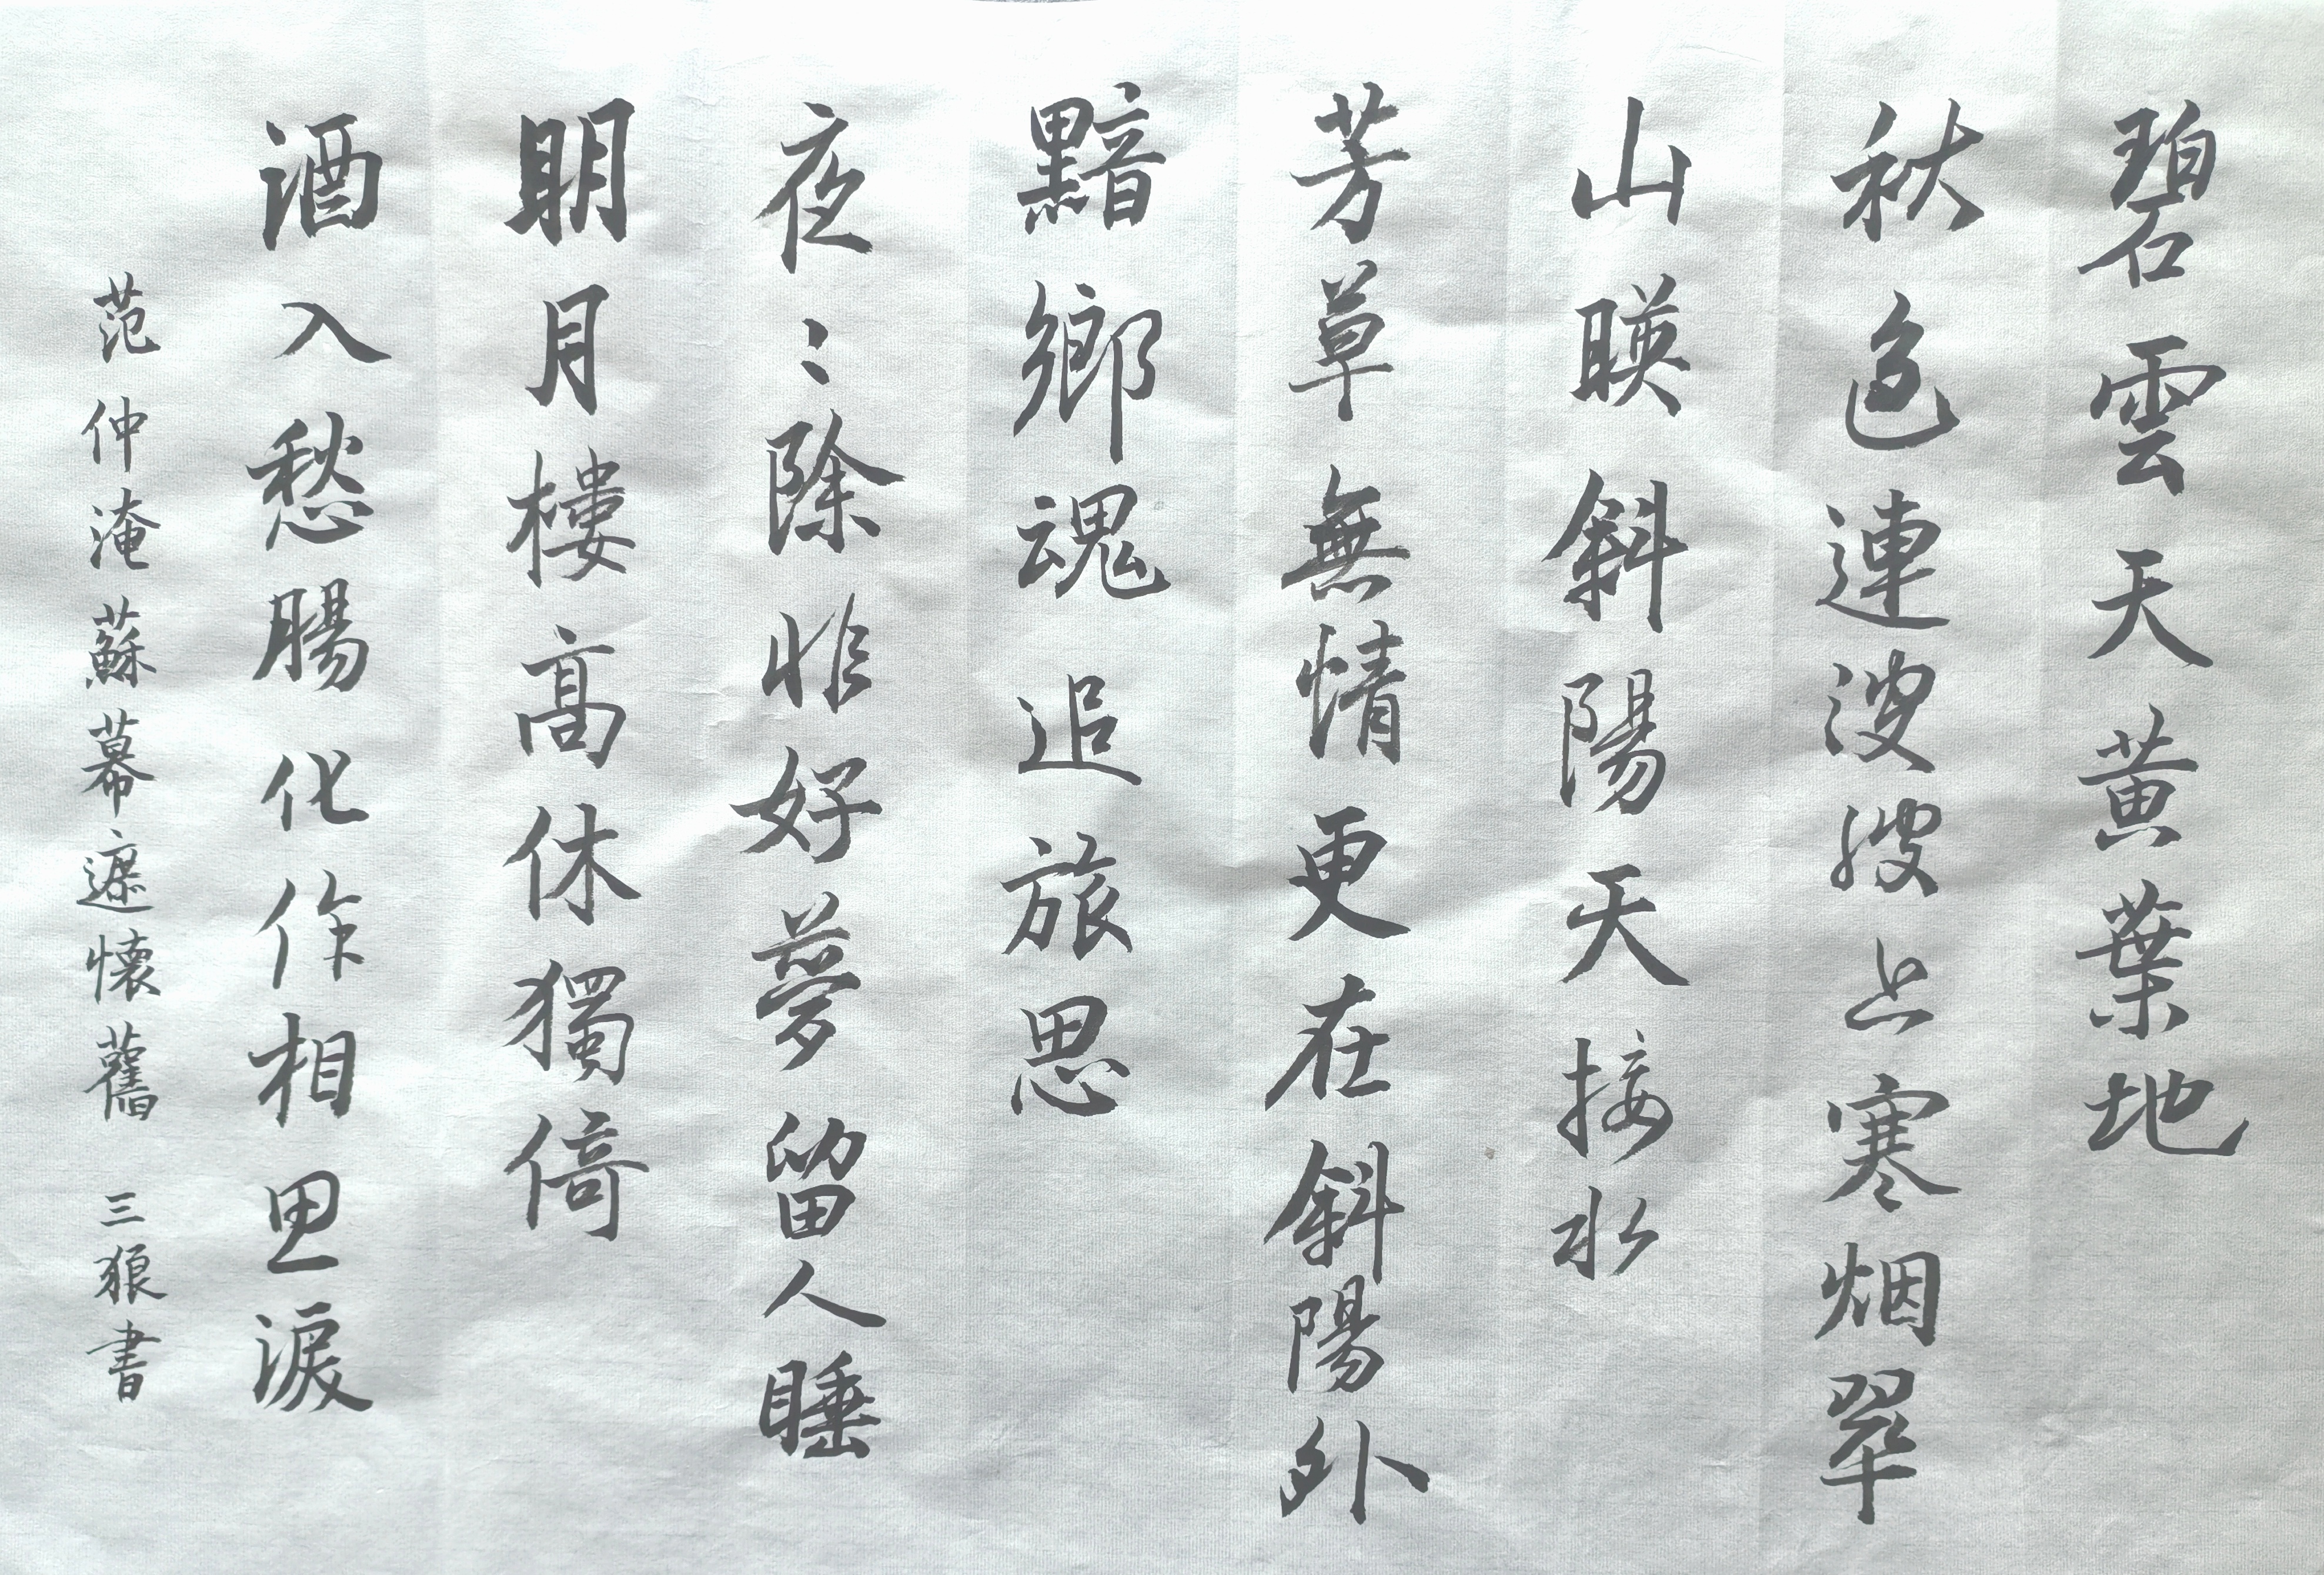 碧雲天黃葉地
秋色連波波上寒烟翠
山暎斜陽天接水
芳草無情更在斜陽外
黯鄉魂追旅思
夜〻除非好夢留人睡
明月樓高休獨倚
酒入愁腸化作相思淚
范仲淹蘇幕遮懷舊 三狼書